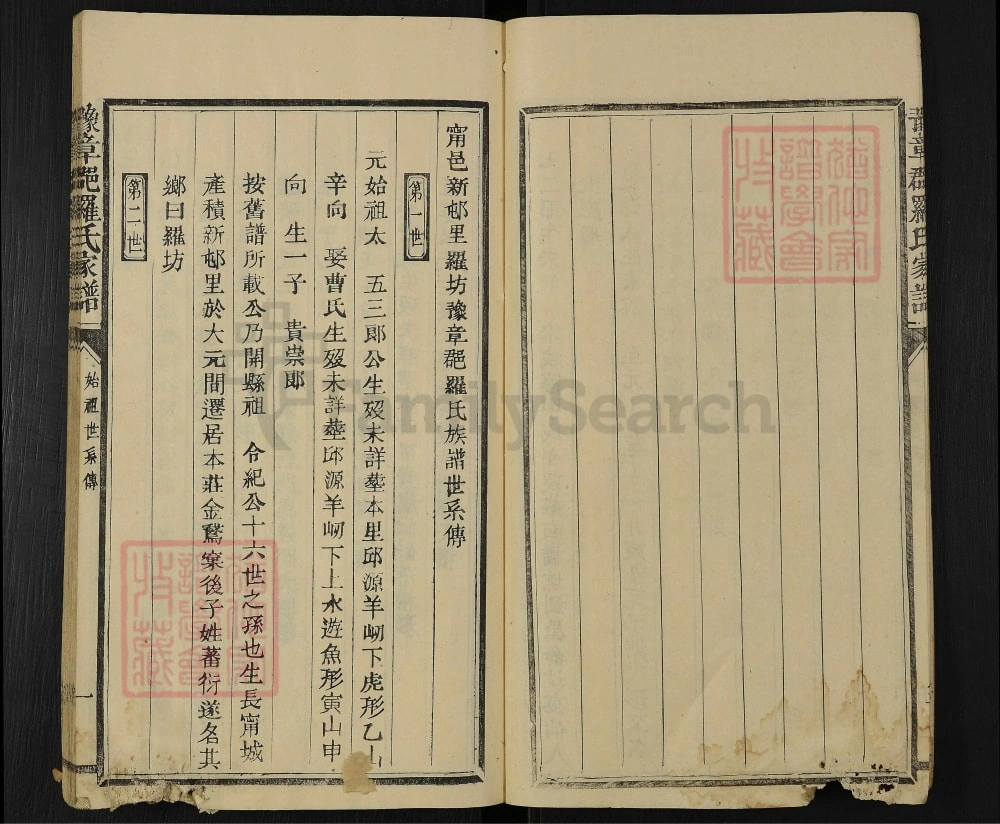 豫章郡羅氏家譜
甯邑新邨里羅坊豫章郡羅氏族譜世系傳
第一世
元始祖太 五三郎公生歿未詳塟本里邱源羊峒下虎形乙山
辛向 娶曹氏生歿未詳塟邱源羊峒下上水遊魚形寅山申
向 生一子 貴崇郎
按舊譜所載公乃開縣祖 令紀公十六世之孫也生長甯城
產積新邨里於大元間遷居本莊金鵞寨後子姓蕃衍遂名其
鄉曰羅坊
第二世
豫章郡羅氏家譜
始祖世系傳
一
FamilySearch